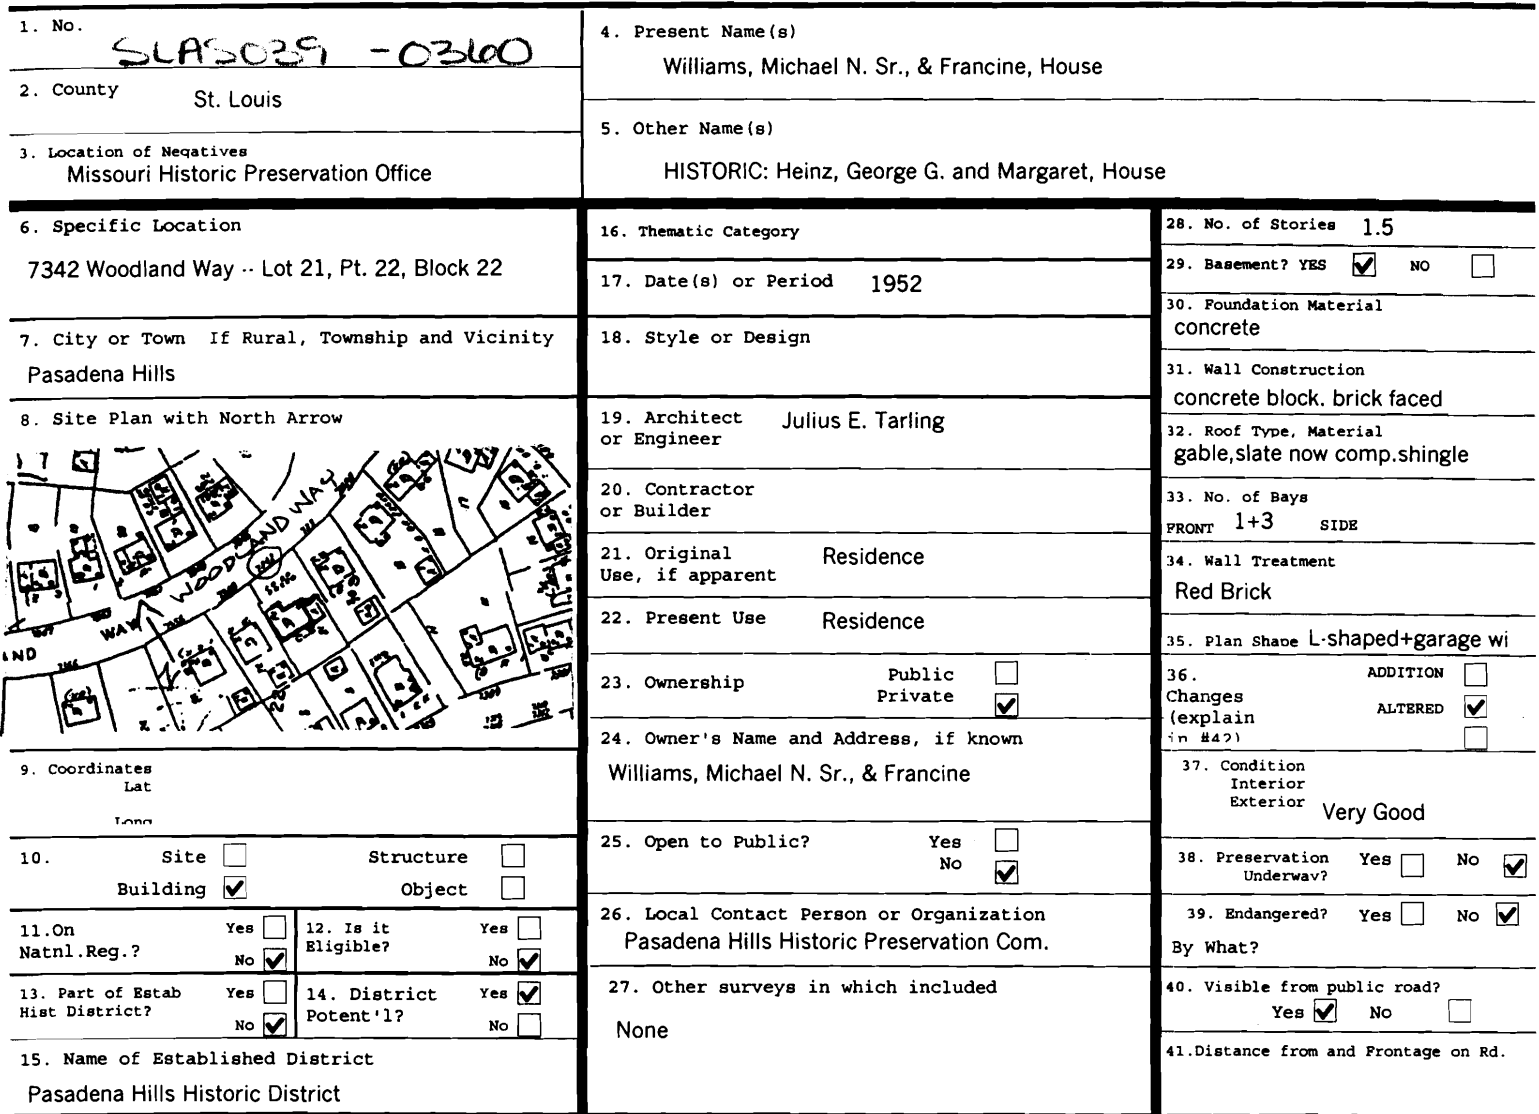 1. No. SLAS039 -0360
2. County St. Louis
3. Location of Negatives
Missouri Historic Preservation Office
4. Present Name(s)
Williams, Michael N. Sr., & Francine, House
5. Other Name(s)
HISTORIC: Heinz, George G. and Margaret, House
6. Specific Location
7342 Woodland Way -- Lot 21, Pt. 22, Block 22
7. City or Town If Rural, Township and Vicinity
Pasadena Hills
8. Site Plan with North Arrow
WOODLAND WAY
WAY
AND
9. Coordinates
Lat
Long
10. Site Structure
Building Object
11.On Yes
Natnl.Reg.? No
12. Is it Yes
Eligible? No
13. Part of Estab Yes
Hist District? No
14. District Yes
Potent'l? No
15. Name of Established District
Pasadena Hills Historic District
16. Thematic Category
17. Date(s) or Period 1952
18. Style or Design
19. Architect Julius E. Tarling
or Engineer
20. Contractor
or Builder
21. Original Residence
Use, if apparent
22. Present Use Residence
23. Ownership Public
Private
24. Owner's Name and Address, if known
Williams, Michael N. Sr., & Francine
25. Open to Public? Yes
No
26. Local Contact Person or Organization
Pasadena Hills Historic Preservation Com.
27. Other surveys in which included
None
28. No. of Stories 1.5
29. Basement? YES NO
30. Foundation Material
concrete
31. Wall Construction
concrete block. brick faced
32. Roof Type, Material
gable,slate now comp.shingle
33. No. of Bays
FRONT 1+3 SIDE
34. Wall Treatment
Red Brick
35. Plan Shape L-shaped+garage wi
36. ADDITION
Changes
(explain ALTERED
in #42)
37. Condition
Interior
Exterior Very Good
38. Preservation Yes No
Underway?
39. Endangered? Yes No
By What?
40. Visible from public road?
Yes No
41.Distance from and Frontage on Rd.